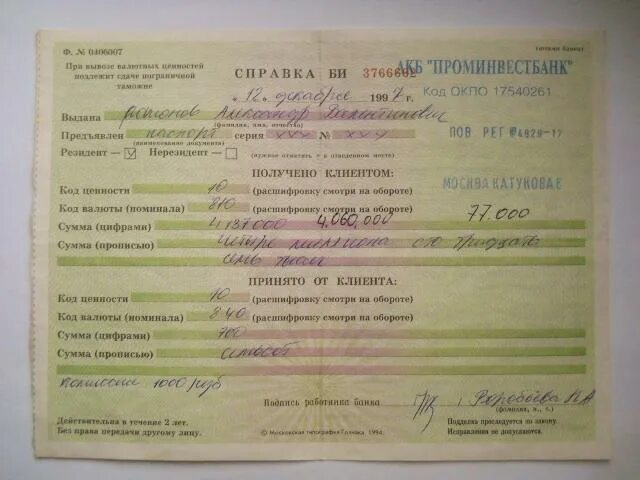 Ф. № 0406007
(штамп банка)
При вывозе валютных ценностей
подлежит сдаче пограничной
таможне
СПРАВКА БИ 3766602
АКБ "ПРОМИНВЕСТБАНК"
Код ОКПО 17540261
" 12 " декабря 1997 г.
Выдана Александр Валентинович
(фамилия, имя, отчество)
Предъявлен паспорт серия XXX № XXX
(наименование документа)
ПОВ РЕГ №4829-17
Резидент — ☑ Нерезидент — ☐ (нужное отметить × в отведенном месте)
ПОЛУЧЕНО КЛИЕНТОМ:
МОСКВА КАТУКОВАЕ
Код ценности 10 (расшифровку смотри на обороте)
Код валюты (номинала) 810 (расшифровку смотри на обороте)
Сумма (цифрами) 4 137000 4,060,000 77.000
Сумма (прописью) четыре миллиона сто тридцать
семь тысяч
ПРИНЯТО ОТ КЛИЕНТА:
Код ценности 10 (расшифровку смотри на обороте)
Код валюты (номинала) 840 (расшифровку смотри на обороте)
Сумма (цифрами) 700
Сумма (прописью) семьсот
комиссия 1000 руб
Подпись работника банка Воробьева НА
(фамилия, и., о.)
Действительна в течение 2 лет.
Без права передачи другому лицу.
© Московская типография Гознака, 1994.
Подделка преследуется по закону.
Исправления не допускаются.